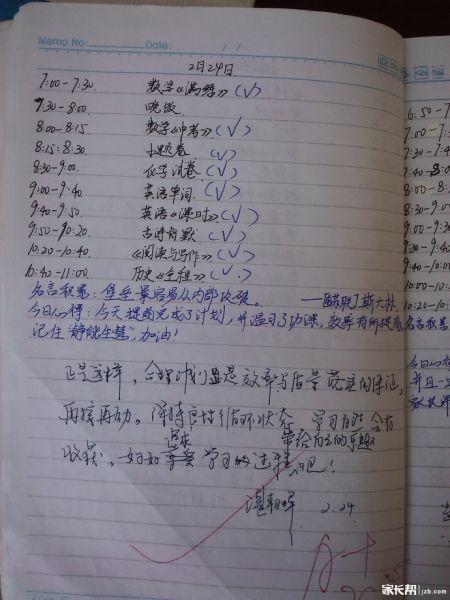 Memo No: Date: / /
2月24日
7:00-7:30 数学《满练》(√)
7:30-8:00 晚饭
8:00-8:15 数学《中考》(√)
8:15-8:30 小题卷 (√)
8:30-9:00 化学试卷 (√)
9:00-9:40 英语单词 (√)
9:40-9:50 英语《课时》(√)
9:50-10:20 古诗背默 (√)
10:20-10:40 《阅读与写作》(√)
10:40-11:00 历史《全程》(√)
名言积累：堡垒最容易从内部攻破。 ——斯大林
今日心得：今天提前完成了计划，并温习了功课，效率有所提高
记住"静能生慧"，加油！
正是这样，合理计划是效率与质量的保证，
再接再励，保持良性循环状态，学习自然会有
收获，好好享受学习的过程带给自己的乐趣吧！
2.24
6:50-7
7:00-
7:30-
7:40-8:0
8:00-8:
8:30-9:0
9:00-9
9:30-9
9:40-10:
10:00-10
10:20-10
名言积累
今日心得
并且一
家长帮 jzb.com